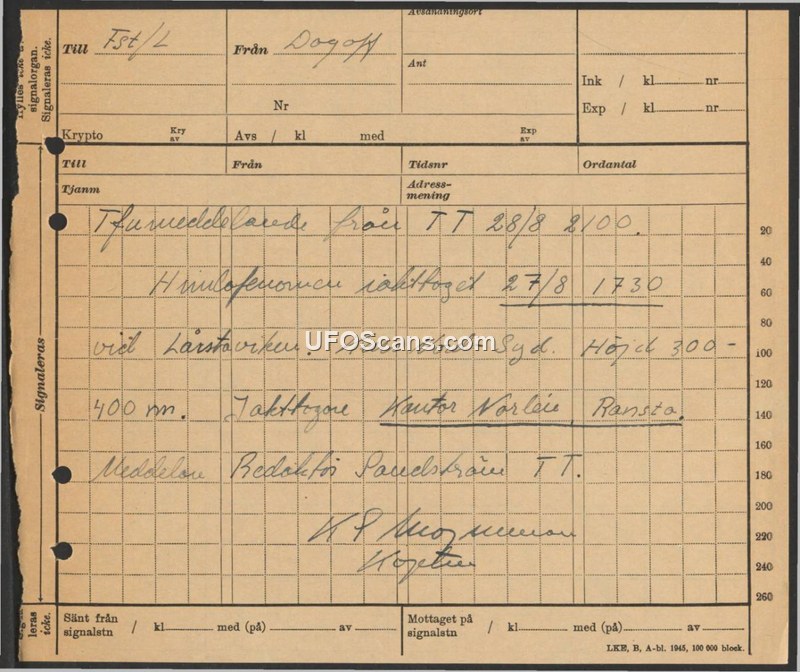 signalorgan.
Signaleras icke.
Avsändningsort
Till Fst/L
Från Dagoff
Ant
Nr
Ink / kl nr
Exp / kl nr
Krypto Kry av
Avs / kl med Exp av
Till Från Tidsnr Ordantal
Tjanm Adress-
mening
Signaleras
Tfnmeddelande från TT 28/8 2100. 20
40
Himlafenomen iakttaget 27/8 1730 60
80
vid Lårstaviken. Syd. Höjd 300- 100
UFOScans.com
120
400 m. Iakttagare Kantor Norlén, Ransta. 140
160
Meddelare Redaktör Sandström TT. 180
200
K
220
Kapten
240
260
leras
icke.
Sänt från
signalstn / kl med (på) av
Mottaget på
signalstn / kl med (på) av
LKE, B, A-bl. 1945, 100 000 block.